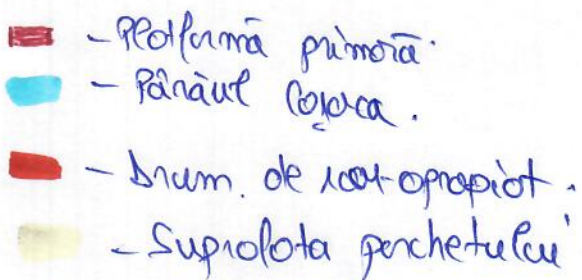 - Platformă primară.
- Pârâul Cojoca.
- Drum. de scos-apropiat.
- Suprafata parchetului